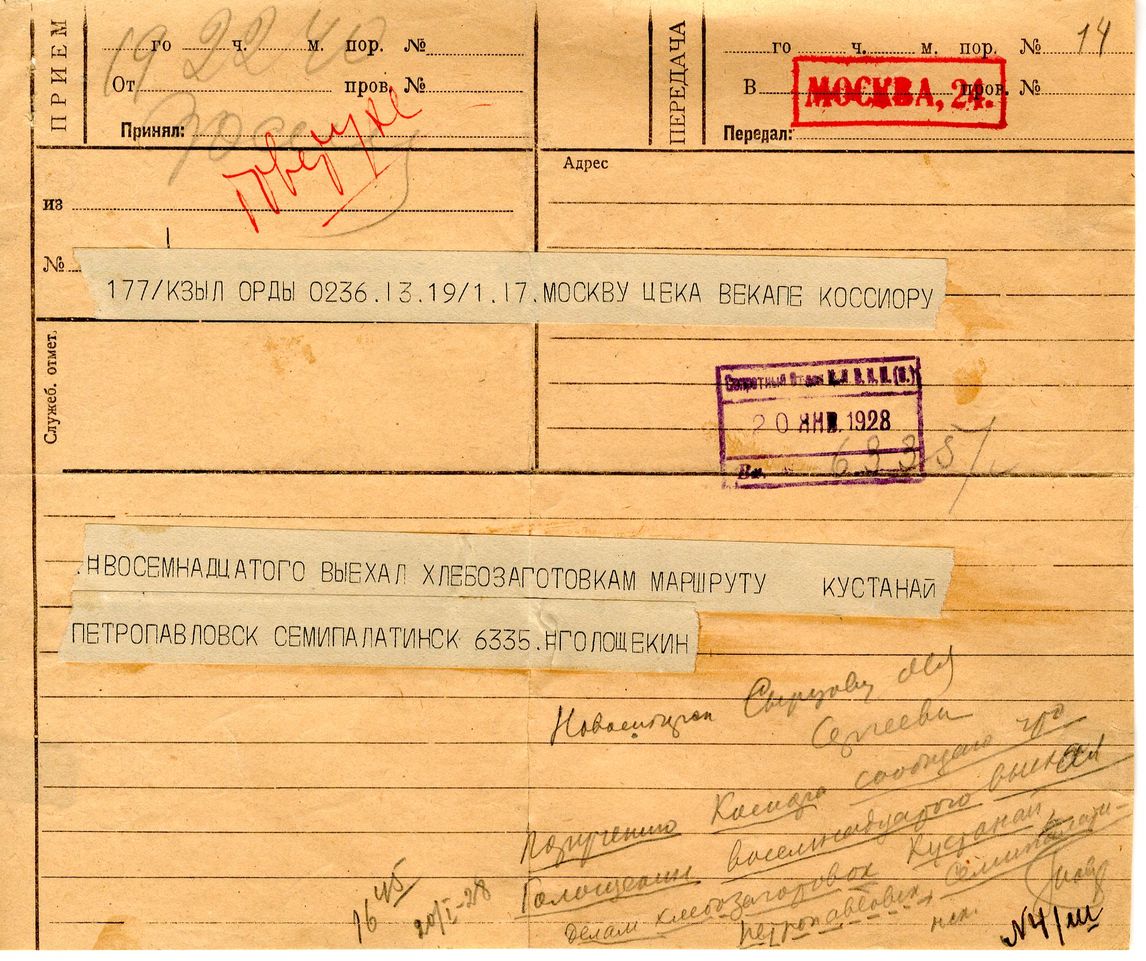 ПРИЕМ
го ч. м. пор. №
19 22 40
От пров. №
Принял:
из
№
ПЕРЕДАЧА
го ч. м. пор. № 14
В пров. №
МОСКВА, 24.
Передал:
Адрес
177/КЗЫЛ ОРДЫ 0236.13.19/1.17.МОСКВУ ЦЕКА ВЕКАПЕ КОССИОРУ
Служеб. отмет.
Секретный Отдел Ц.К В.К.П.(б.)
20 ЯНВ. 1928
Вх. 6335/
.НВОСЕМНАДЦАТОГО ВЫЕХАЛ ХЛЕБОЗАГОТОВКАМ МАРШРУТУ КУСТАНАЙ
ПЕТРОПАВЛОВСК СЕМИПАЛАТИНСК 6335.НГОЛОЩЕКИН
Новосибирск Сырцову для
Сергеева
поручению Косиора сообщаю что
Голощекин восемнадцатого выехал
делам хлебозаготовок Кустанай,
петропавловск, Семипалати-
нск.
16 45
20/I-28
N4/III